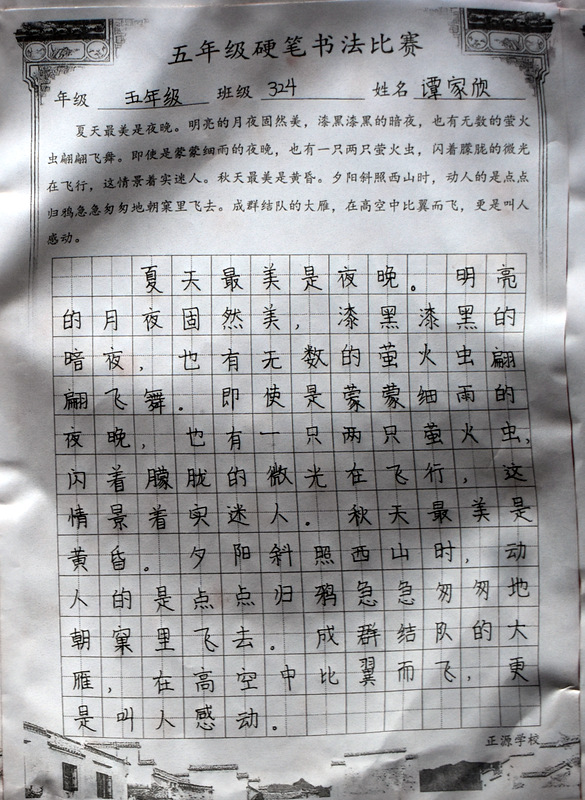 五年级硬笔书法比赛
年级 五年级 班级 324 姓名 谭家欣
夏天最美是夜晚。明亮的月夜固然美，漆黑漆黑的暗夜，也有无数的萤火
虫翩翩飞舞。即使是蒙蒙细雨的夜晚，也有一只两只萤火虫，闪着朦胧的微光
在飞行，这情景着实迷人。秋天最美是黄昏。夕阳斜照西山时，动人的是点点
归鸦急急匆匆地朝窠里飞去。成群结队的大雁，在高空中比翼而飞，更是叫人
感动。
夏天最美是夜晚。明亮
的月夜固然美，漆黑漆黑的
暗夜，也有无数的萤火虫翩
翩飞舞。即使是蒙蒙细雨的
夜晚，也有一只两只萤火虫，
闪着朦胧的微光在飞行，这
情景着实迷人。秋天最美是
黄昏。夕阳斜照西山时，动
人的是点点归鸦急急匆匆地
朝窠里飞去。成群结队的大
雁，在高空中比翼而飞，更
是叫人感动。
正源学校